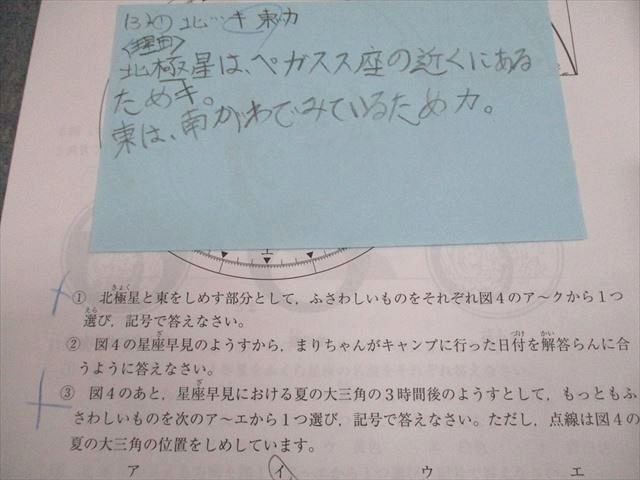 13 ② 北…キ 東…カ
<理由>
北極星は、ペガスス座の近くにある
ためキ。
東は、南がわでみているためカ。
① 北極星と東をしめす部分として，ふさわしいものをそれぞれ図4のア〜クから1つ
選び，記号で答えなさい。
② 図4の星座早見のようすから，まりちゃんがキャンプに行った日付を解答らんに合
うように答えなさい。
③ 図4のあと，星座早見における夏の大三角の3時間後のようすとして，もっともふ
さわしいものを次のア〜エから1つ選び，記号で答えなさい。ただし，点線は図4の
夏の大三角の位置をしめしています。
ア イ ウ エ